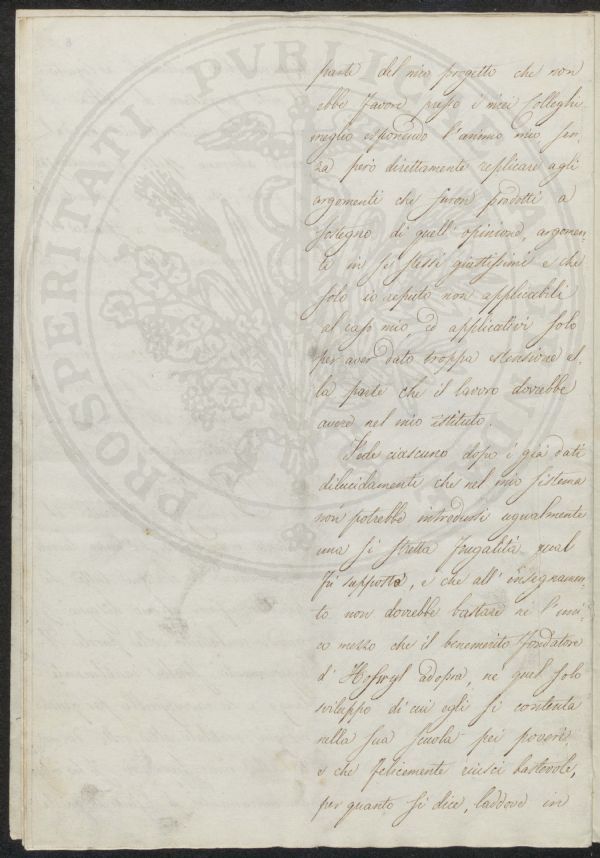 parte del mio progetto che non
ebbe favore presso i miei Colleghi
meglio esponendo l'animo mio sen-
za però direttamente replicare agli
argomenti che furon prodotti a
sostegno di quell'opinione, argomen-
ti in se stessi giustissimi e che
solo io reputo non applicabili
al caso mio, ed applicativi solo
per aver dato troppa estensione al-
la parte che il lavoro dovrebbe
avere nel mio istituto.
Vede ciascuno dopo i già dati
dilucidamenti che nel mio sistema
non potrebbe introdursi ugualmente
una sì stretta frugalità qual
fu supposta, e che all'insegnamen-
to non dovrebbe bastare nè l'uni-
co mezzo che il benemerito fondatore
d'Hofwyl adopra, ne quel solo
sviluppo di cui egli si contenta
nella sua scuola pei poveri,
e che felicemente riuscì bastevole,
per quanto si dice, laddove in
PROSPERITATI PUBLICAE